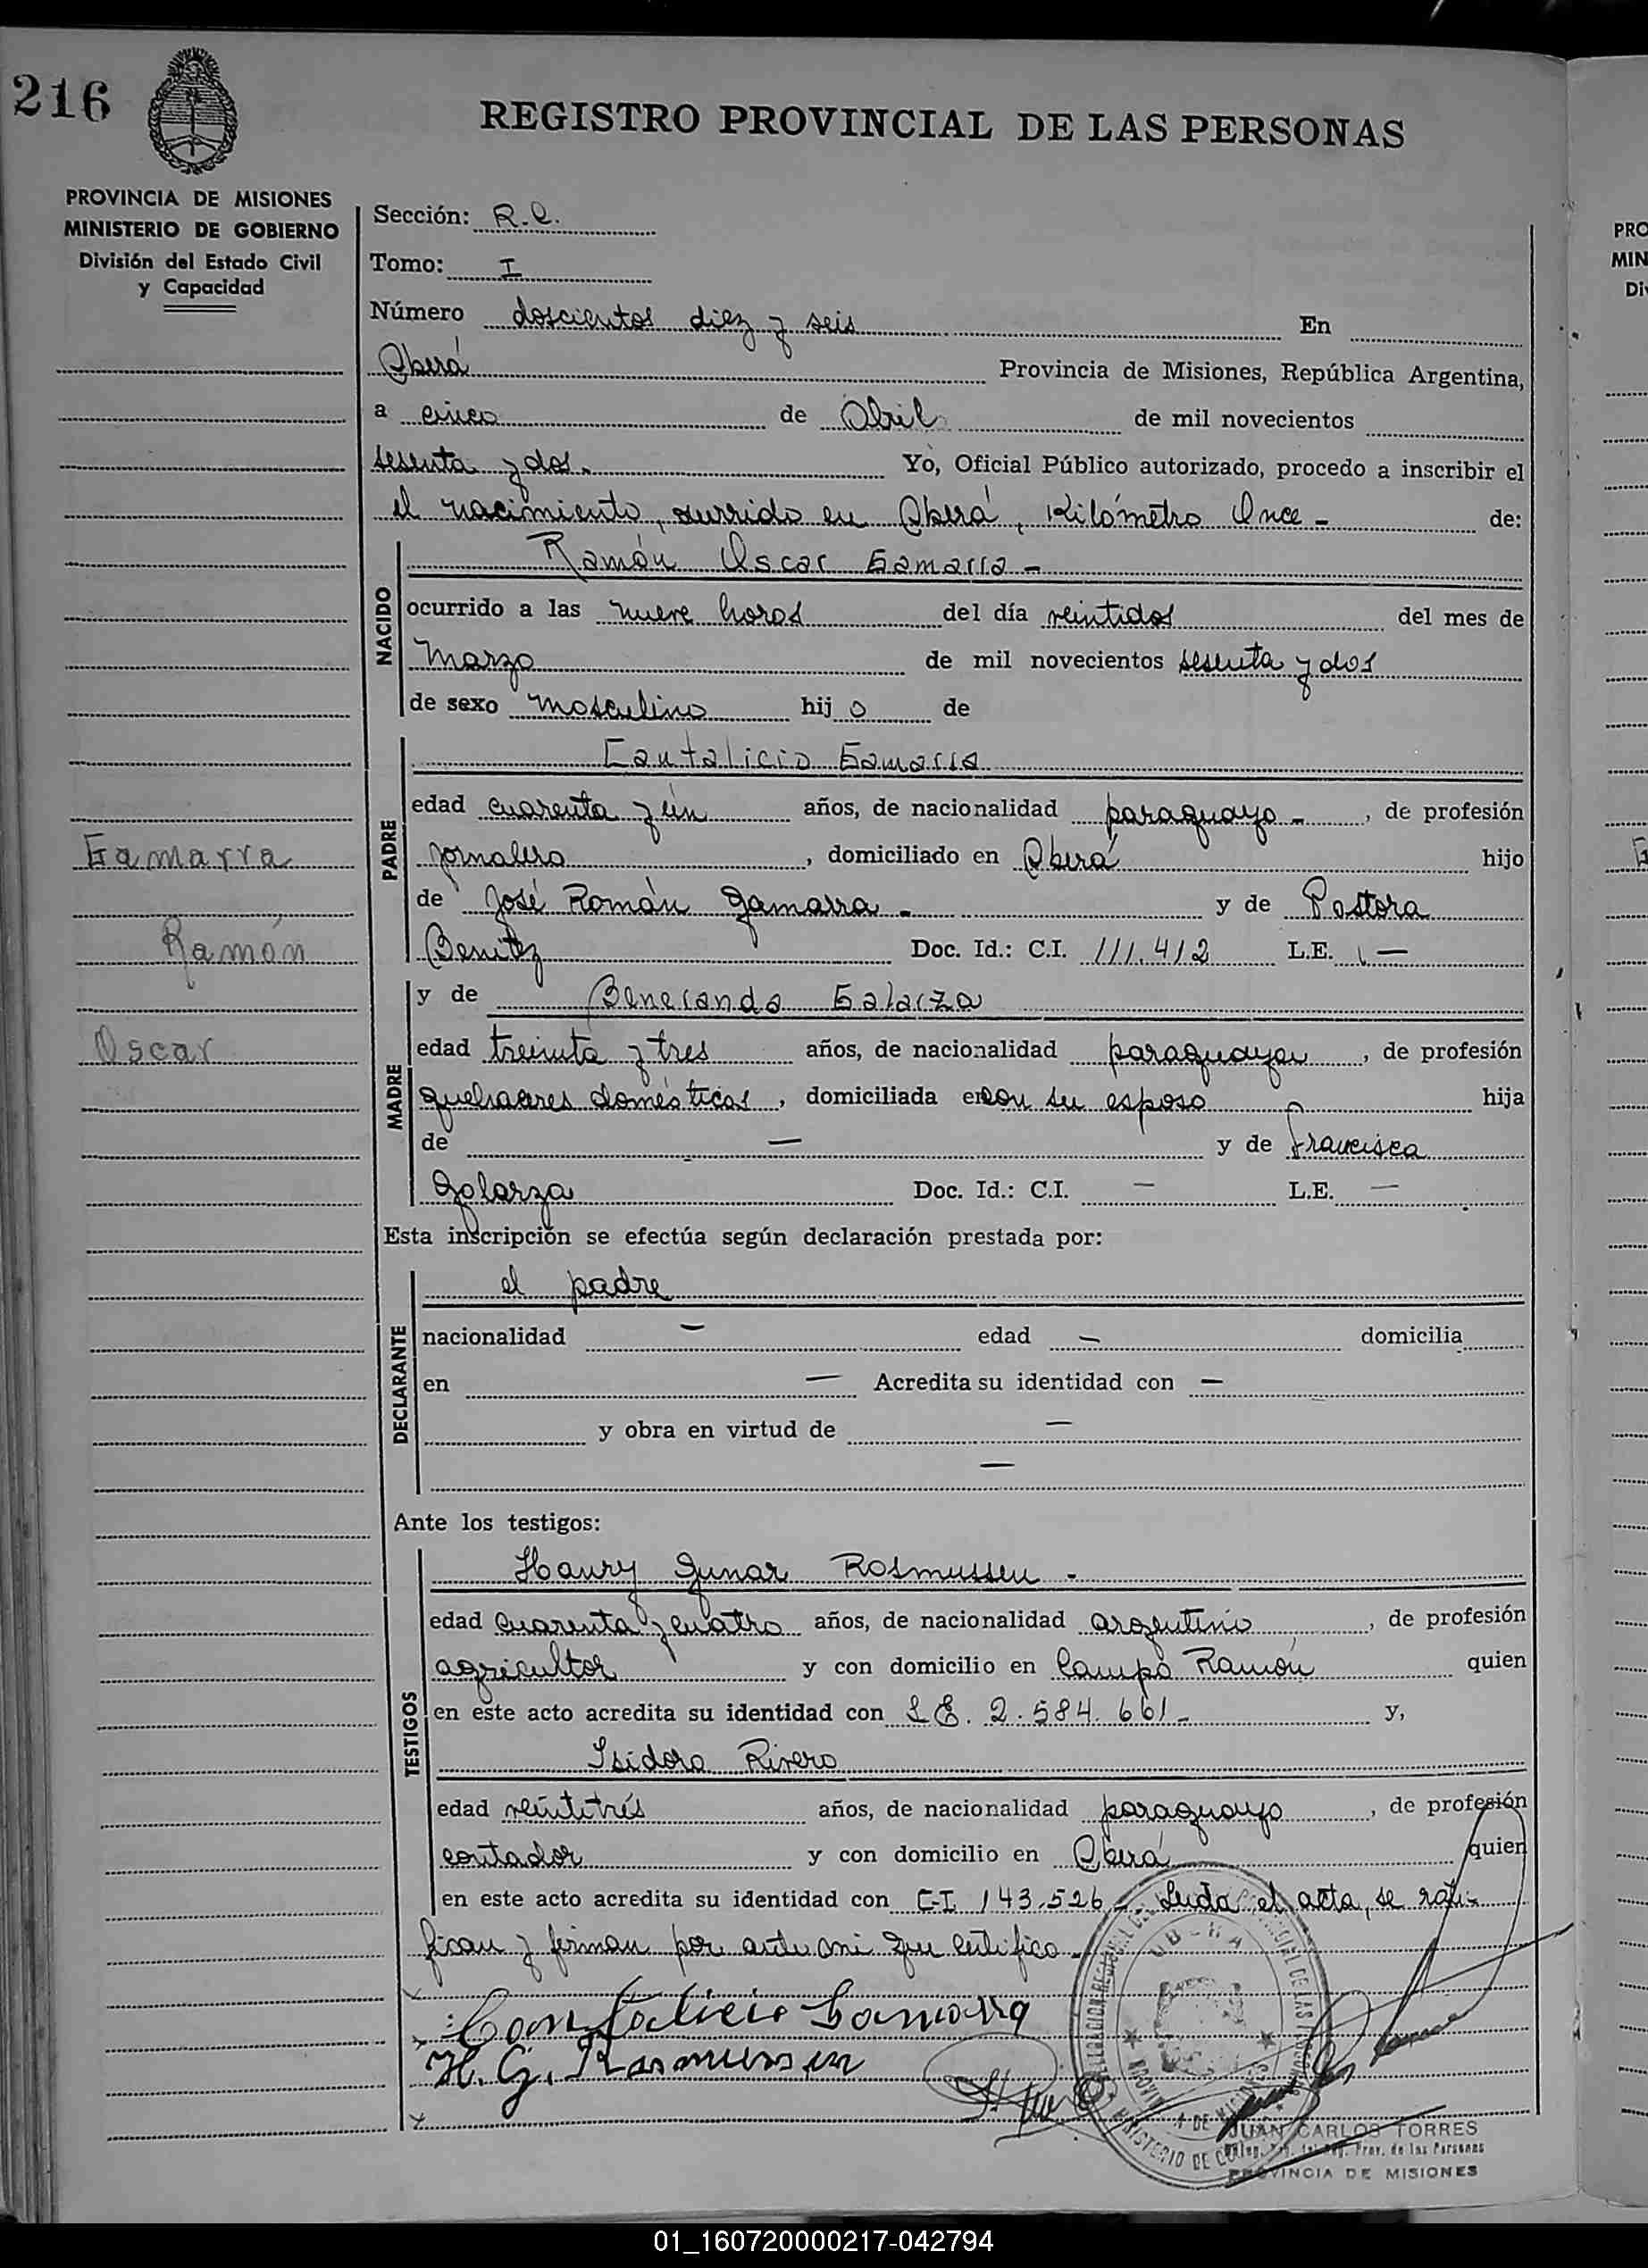 216
REGISTRO PROVINCIAL DE LAS PERSONAS
PROVINCIA DE MISIONES
MINISTERIO DE GOBIERNO
División del Estado Civil
y Capacidad
Sección: R.C.
Tomo: I
Número doscientos diez y seis En
Oberá Provincia de Misiones, República Argentina,
a cinco de Abril de mil novecientos
sesenta y dos. Yo, Oficial Público autorizado, procedo a inscribir el
el nacimiento, ocurrido en Oberá, Kilómetro Once - de:
NACIDO
Ramón Oscar Gamarra -
ocurrido a las nueve horas del día veintidos del mes de
Marzo de mil novecientos sesenta y dos
de sexo masculino hij o de
PADRE
Cantalicio Gamarra
edad cuarenta y un años, de nacionalidad paraguayo - , de profesión
Gamarra
jornalero , domiciliado en Oberá hijo
de José Román Gamarra - y de Pastora
Ramón
Benitez Doc. Id.: C.I. 111.412 L.E. —
MADRE
y de Beneranda Galarza
Oscar
edad treinta y tres años, de nacionalidad paraguaya , de profesión
quehaceres domésticos , domiciliada en con su esposo hija
de — y de Francisca
Galarza Doc. Id.: C.I. — L.E. —
Esta inscripción se efectúa según declaración prestada por:
DECLARANTE
el padre
nacionalidad — edad — domicilia
en — Acredita su identidad con —
y obra en virtud de —
—
Ante los testigos:
TESTIGOS
Haury Gunar Rasmussen -
edad cuarenta y cuatro años, de nacionalidad argentino , de profesión
agricultor y con domicilio en Campo Ramón quien
en este acto acredita su identidad con L.E. 2.584.661 - y,
Isidoro Rivero
edad veintitrés años, de nacionalidad paraguayo , de profesión
contador y con domicilio en Oberá quien
en este acto acredita su identidad con C.I. 143.526 - Leida el acta, se rati-
fican y firman por ante mi que certifico -
Cantalicio Gamarra
H. G. Rasmussen
JUAN CARLOS TORRES
Prov. de las Personas
PROVINCIA DE MISIONES
01_160720000217-042794